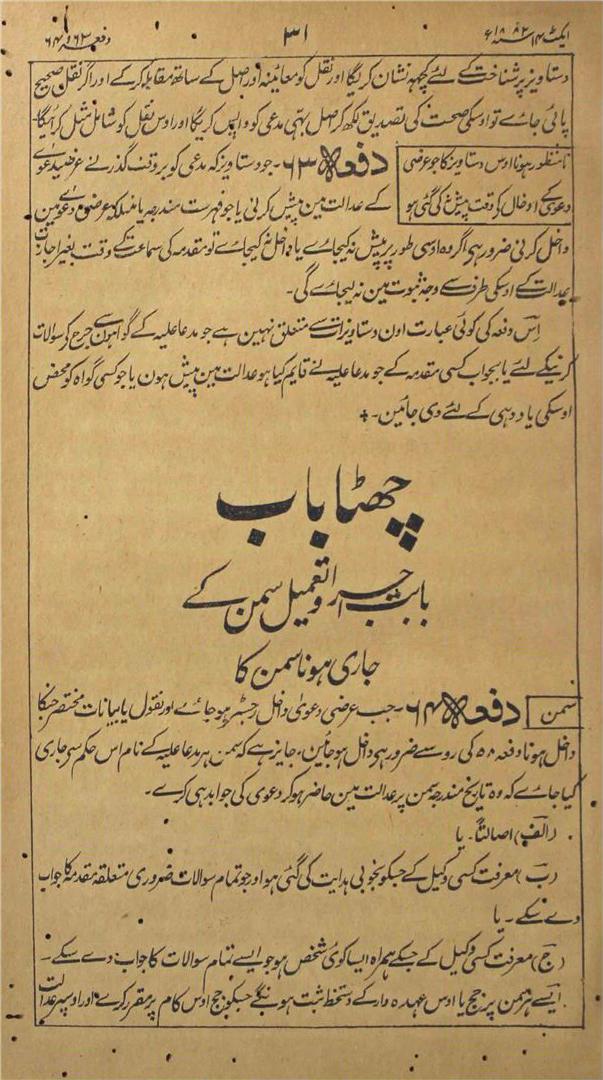 ایکٹ ۱۴ سنہ ۱۸۸۲ء
۳۱
دفعہ ۶۳ و ۶۴
دستاویز پر شناخت کے لئے کچھہ نشان کریگا اور نقل کو معائینہ اور اصل کے ساتھہ مقابلہ کرکے اور اگر نقل صحیح
پائی جاے تو اوسکی صحت کی تصدیق لکھہ کر اصل بہی مدعی کو واپس کریگا اور اوس نقل کو شامل مثل کرائیگا۔
نامنظور ہونا اوس دستاویز کا جو عرضی
دعوی کے ادخال کے وقت پیش نہ کی گئی ہو
دفعہ ۶۳۔ جو دستاویز کہ مدعی کو بر وقت گذرنے عرضیدعوے
کے عدالت مین پیش کرنی یا جو فہرست مندرجہ یا منسلکہ عرضی دعوے مین
داخل کرنی ضرور ہی اگر وہ اوسی طور پر پیش نہ کیجاے یا داخل نہ کیجاے تو مقدمہ کی سماعت کے وقت بغیر اجازت
عدالت کے اوسکی طرف سے وجہ ثبوت مین نہ لیجاے گی۔
اِس دفعہ کی کوئی عبارت اون دستاویزات سے متعلق نہین ہے جو مدعا علیہ کے گواہون سے جرح کے سوالات
کرنیکے لئے یا بجواب کسی مقدمہ کے جو مدعا علیہ نے قایم کیا ہو عدالت مین پیش ہون یا جو کسی گواہ کو محض
اوسکی یاد دہی کے لئے دی جائین۔
چھٹا باب
بابت اجرا و تعمیل سمن کے
جاری ہونا سمن کا
سمن
دفعہ ۶۴۔ جب عرضی دعوی داخل رجسٹر ہو جاے اور نقول یا بیانات مختصر جنکا
داخل ہونا دفعہ ۵۸ کی رو سے ضرور ہی داخل ہو جائین، جایز ہے کہ سمن ہر مدعا علیہ کے نام اس حکم سے جاری
کیا جاے کہ وہ تاریخ مندرجہ سمن پر عدالت مین حاضر ہو کر دعوی کی جوابدہی کرے۔
(الف) اصالتاً۔ یا
(ب) معرفت کسی وکیل کے جسکو بخوبی ہدایت کی گئی ہو اور جو تمام سوالات ضروری متعلقہ مقدمہ کا جواب
دے سکے۔ یا
(ج) معرفت کسی وکیل کے جسکے ہمراہ ایسا کوئی شخص ہو جو ایسے تمام سوالات کا جواب دے سکے۔
ایسے ہر سمن پر جج یا اوس عہدہ دار کے دستخط ثبت ہونگے جسکو جج اوس کام پر مقرر کرے اور اوسپر عدالت